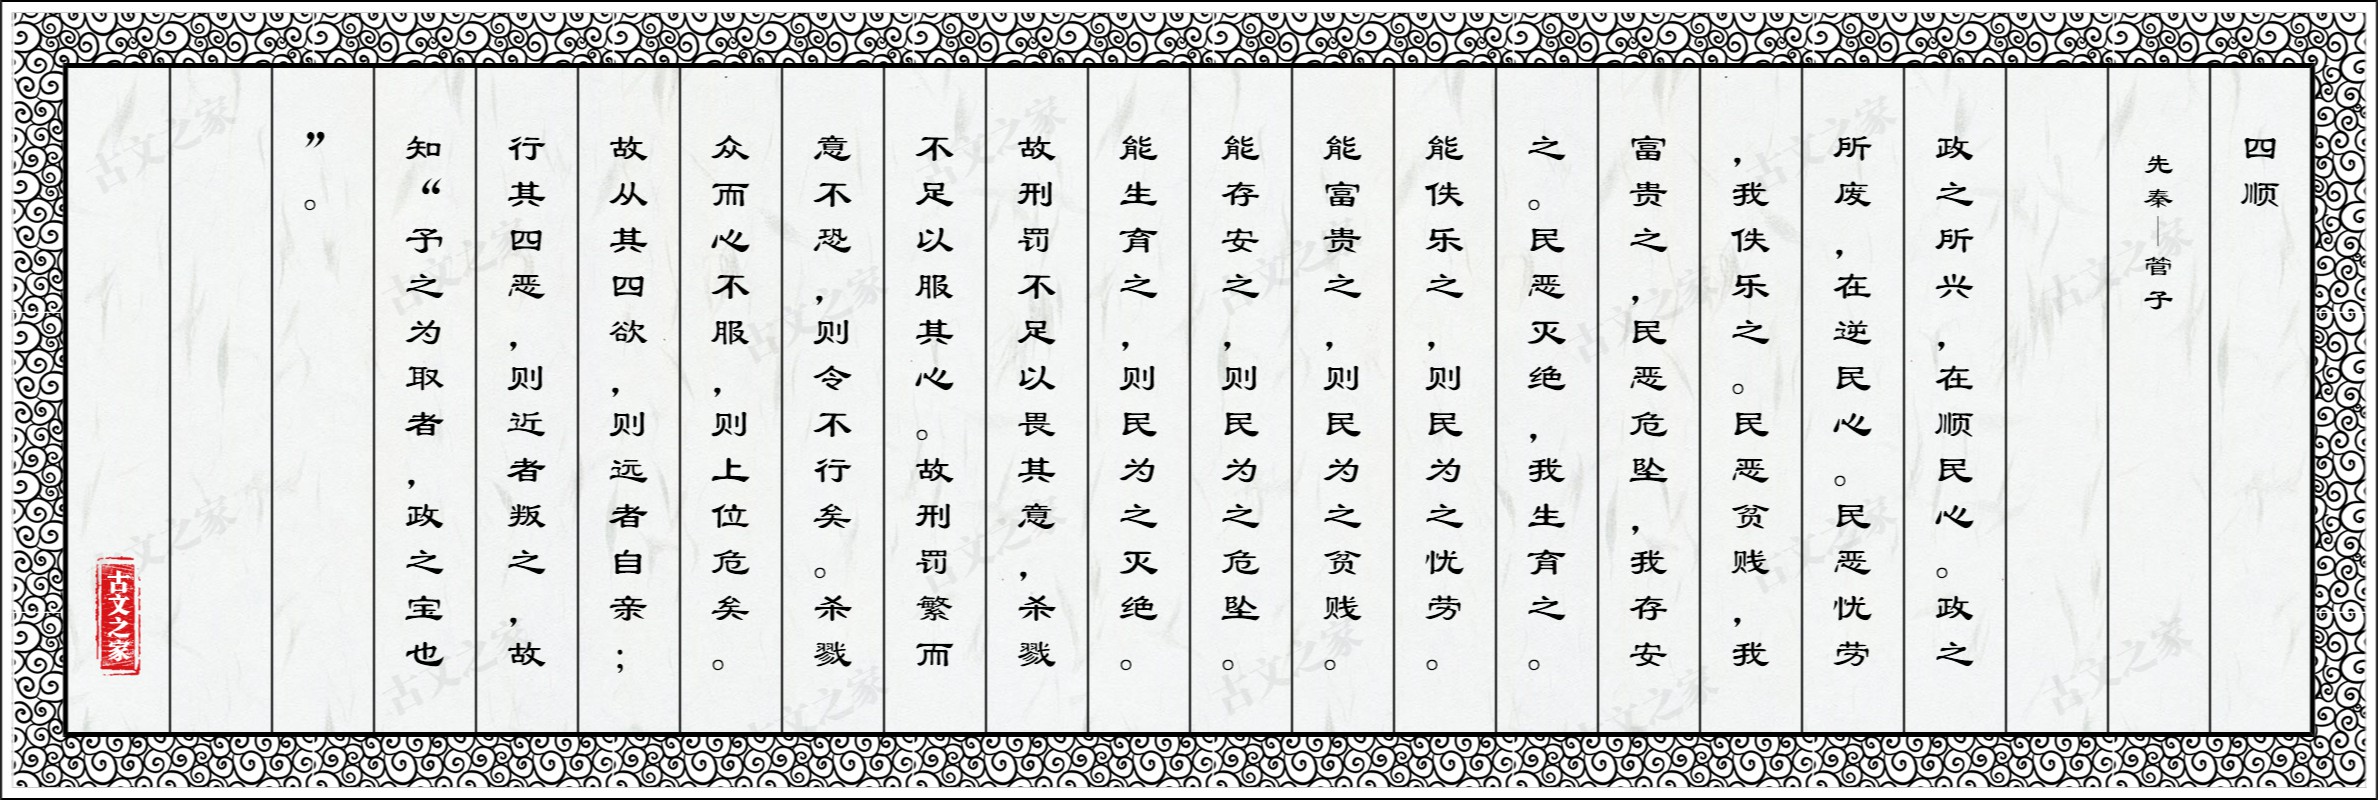 四顺
先秦—菅子
政之所兴，在顺民心。政之
所废，在逆民心。民恶忧劳
，我佚乐之。民恶贫贱，我
富贵之，民恶危坠，我存安
之。民恶灭绝，我生育之。
能佚乐之，则民为之忧劳。
能富贵之，则民为之贫贱。
能存安之，则民为之危坠。
能生育之，则民为之灭绝。
故刑罚不足以畏其意，杀戮
不足以服其心。故刑罚繁而
意不恐，则令不行矣。杀戮
众而心不服，则上位危矣。
故从其四欲，则远者自亲；
行其四恶，则近者叛之，故
知“予之为取者，政之宝也
”。
古文之家